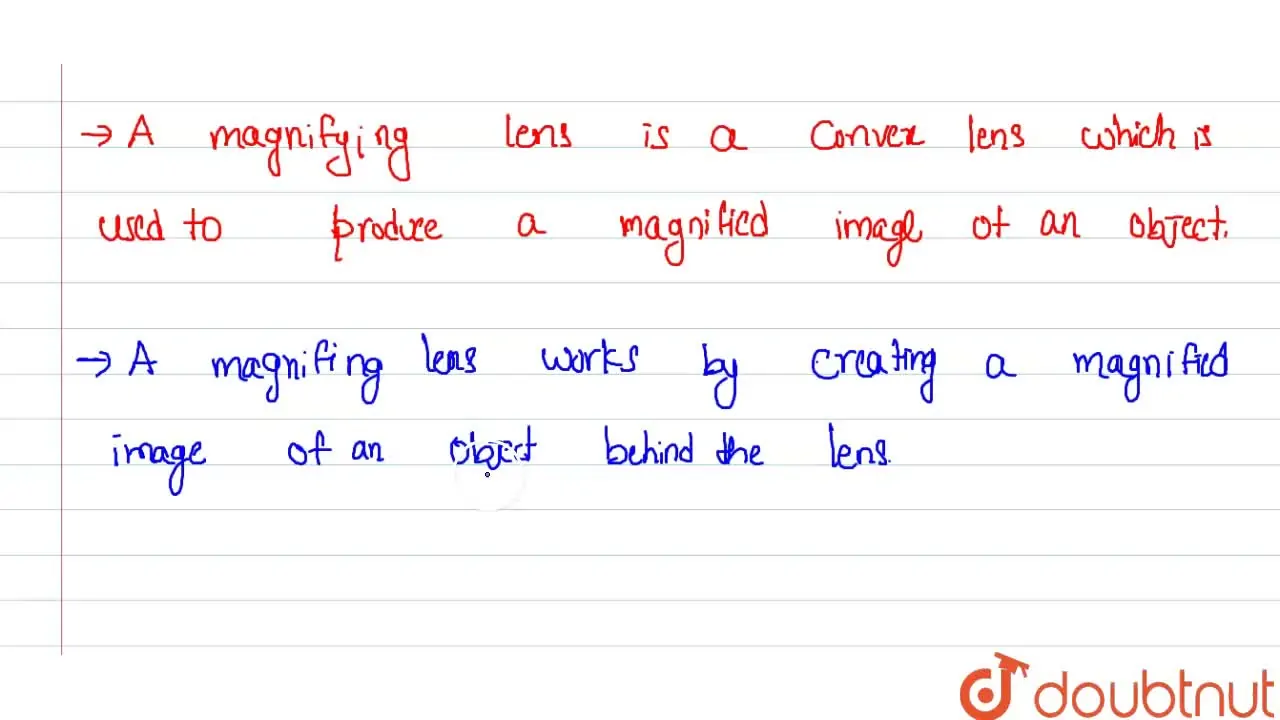 → A magnifying lens is a convex lens which is
used to produce a magnified image of an object.
→ A magnifing lens works by creating a magnified
image of an object behind the lens.
doubtnut